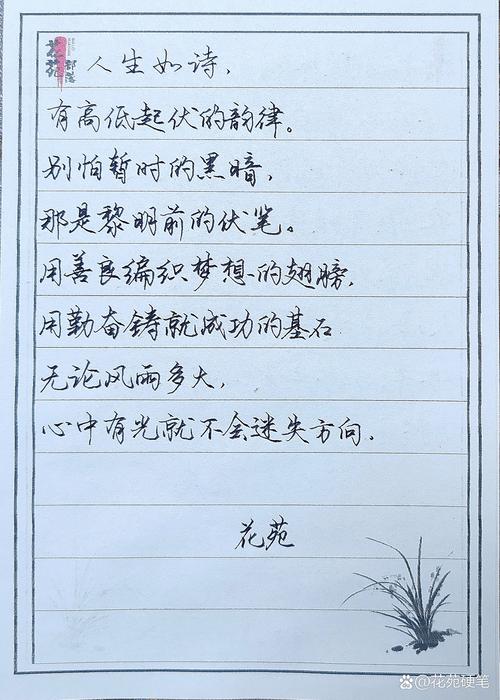 花苑
部落
人生如诗，
有高低起伏的韵律。
别怕暂时的黑暗，
那是黎明前的伏笔。
用善良编织梦想的翅膀，
用勤奋铸就成功的基石
无论风雨多大，
心中有光就不会迷失方向．
花苑
@花苑硬笔